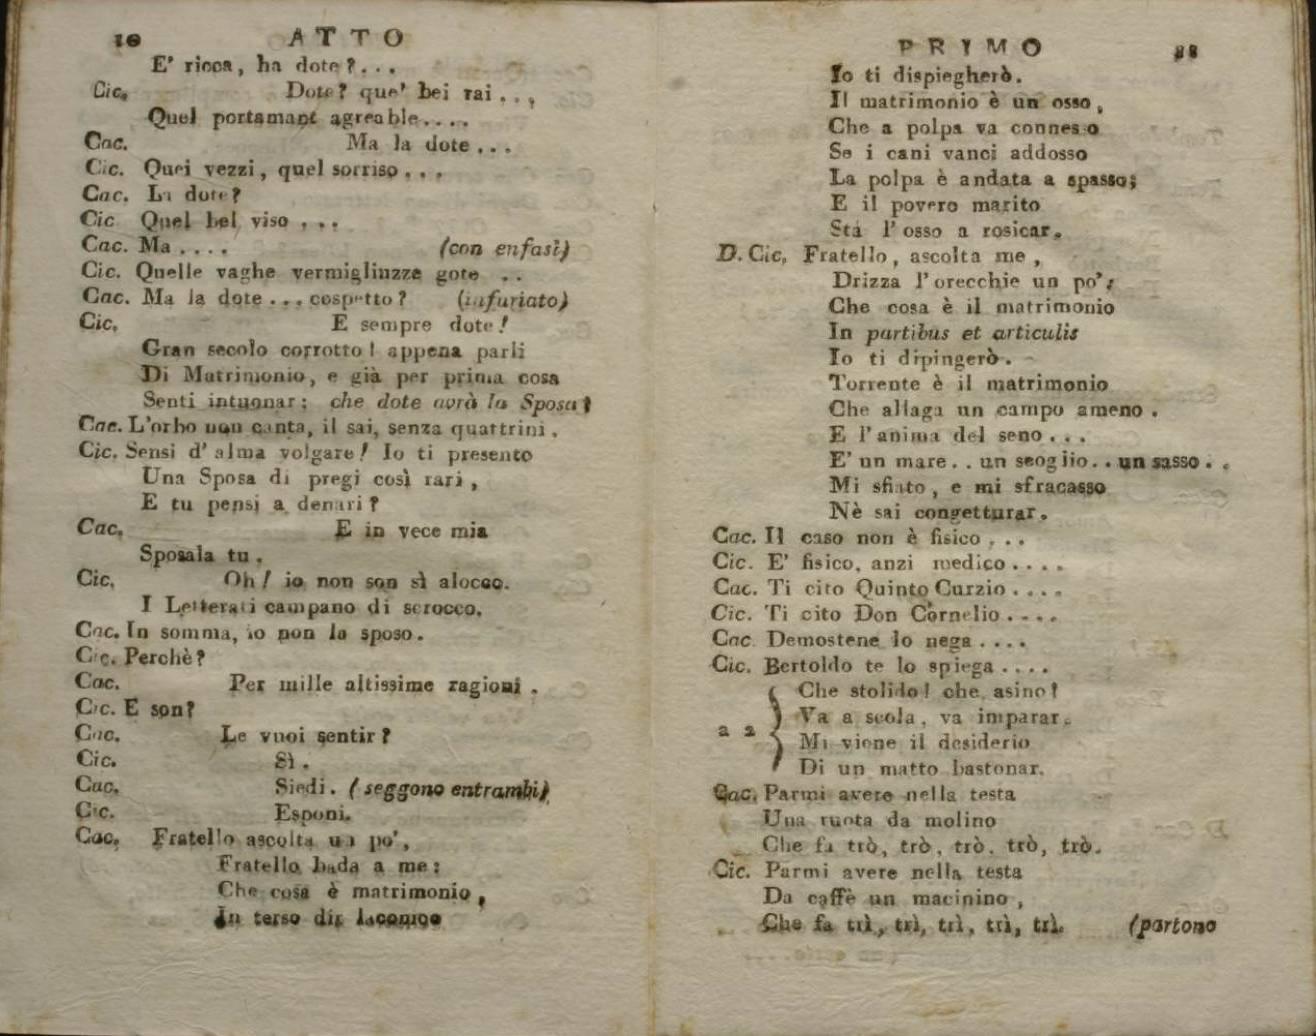 10 ATTO
E' ricca, ha dote?...
Cic. Dote? que' bei rai...,
Quel portamant agreable....
Cac. Ma la dote...
Cic. Quei vezzi, quel sorriso...
Cac. La dote?
Cic Quel bel viso...
Cac. Ma.... (con enfasi)
Cic. Quelle vaghe vermigliuzze gote ..
Cac. Ma la dote... cospetto? (infuriato)
Cic. E sempre dote!
Gran secolo corrotto! appena parli
Di Matrimonio, e già per prima cosa
Senti intuonar: che dote avrà la Sposa?
Cac. L'orbo non canta, il sai, senza quattrini.
Cic. Sensi d'alma volgare! Io ti presento
Una Sposa di pregi così rari,
E tu pensi a denari?
Cac. E in vece mia
Sposala tu.
Cic. Oh! io non son sì alocco.
I Letterati campano di scrocco.
Cac. In somma, io non la sposo.
Cic. Perchè?
Cac. Per mille altissime ragioni.
Cic. E son?
Cac. Le vuoi sentir?
Cic. Sì.
Cac. Siedi. (seggono entrambi)
Cic. Esponi.
Cac. Fratello ascolta un po',
Fratello bada a me:
Che cosa è matrimonio,
In terso dir laconico
PRIMO 11
Io ti dispiegherò.
Il matrimonio è un osso,
Che a polpa va connesso
Se i cani vanci addosso
La polpa è andata a spasso;
E il povero marito
Stà l'osso a rosicar.
D. Cic. Fratello, ascolta me,
Drizza l'orecchie un po';
Che cosa è il matrimonio
In partibus et articulis
Io ti dipingerò.
Torrente è il matrimonio
Che allaga un campo ameno.
E l'anima del seno...
E' un mare.. un scoglio.. un sasso..
Mi sfiato, e mi sfracasso
Nè sai congetturar.
Cac. Il caso non è fisico...
Cic. E' fisico, anzi medico....
Cac. Ti cito Quinto Curzio....
Cic. Ti cito Don Cornelio....
Cac. Demostene lo nega....
Cic. Bertoldo te lo spiega....
Che stolido! che asino!
Va a scola, va imparar.
a 2 Mi viene il desiderio
Di un matto bastonar.
Cac. Parmi avere nella testa
Una ruota da molino
Che fa trò, trò, trò, trò, trò.
Cic. Parmi avere nella testa
Da caffè un macinino,
Che fa trì, trì, trì, trì, trì. (partono